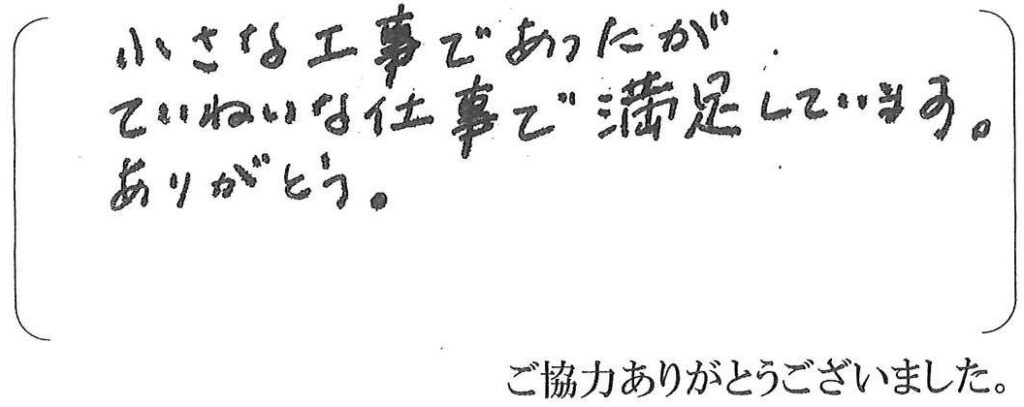 小さな工事であったが
ていねいな仕事で満足しています。
ありがとう。
ご協力ありがとうございました。